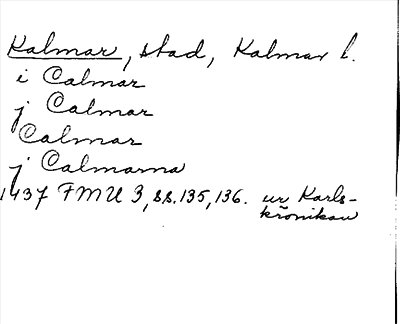 Kalmar, stad, Kalmar l.
i Calmar
j Calmar
Calmar
j Calmarna
1437 FMU 3, ss. 135, 136. ur Karls-
krönikan